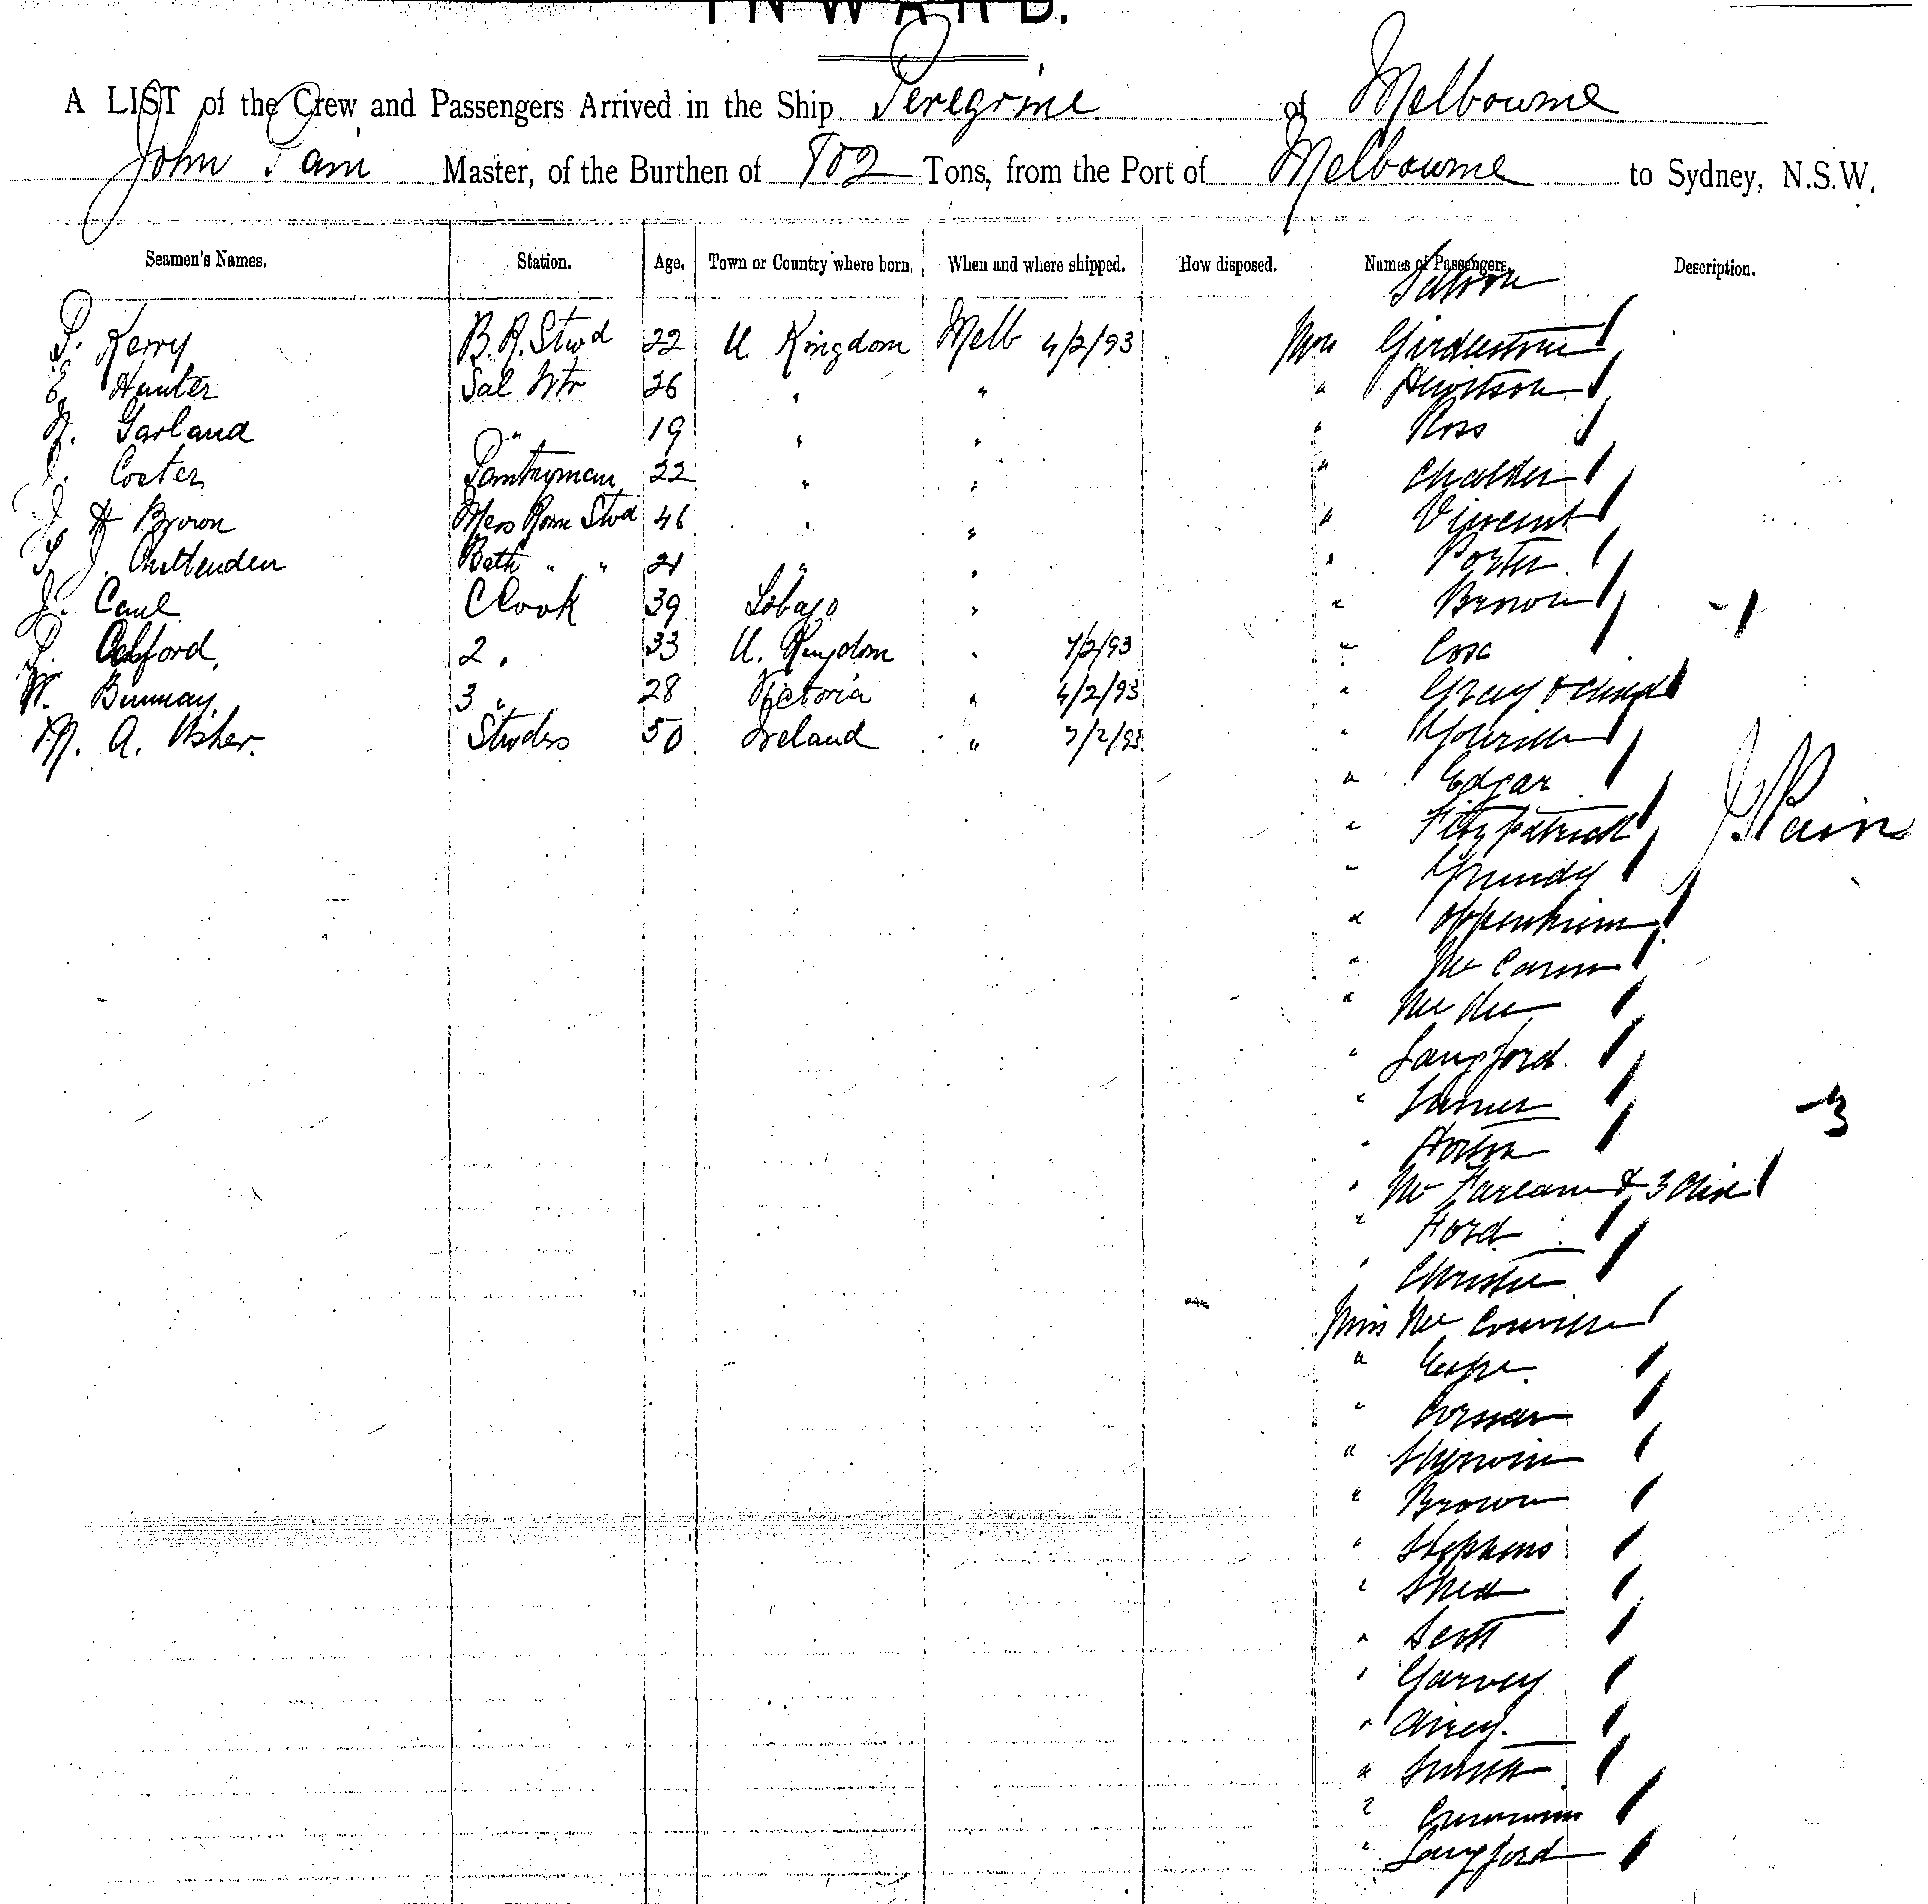 INWARD.
A LIST of the Crew and Passengers Arrived in the Ship Peregrine of Melbourne
John Pain Master, of the Burthen of 902 Tons, from the Port of Melbourne to Sydney, N.S.W.
Seamen's Names. Station. Age. Town or Country where born. When and where shipped. How disposed. Names of Passengers. Description.
Saloon
P. Kerry B.R. Stwd 22 U. Kingdom Melb 4/2/93 Mrs Girdlestone
E. Hunter Sal Wtr 26 " " " Hewitson
Garland " 19 " " " Ross
Coster Pantryman 22 " " " Chalder
J. H Brown Mess Rom Stwd 46 " " " Vincent
J. Chittenden Bath " " 21 " " " Porter
J. Caul Cook 39 Tobago " " Brown - 1
Oxford. 2 " 33 U. Kingdom " 7/2/93 " Cox
W. Bunnay. 3 " 28 Victoria " 4/2/93 " Gray & child
M. A. Usher. Stwdss 50 Ireland " 7/2/93 "
" Edgar
" Fitzpatrick J Pain
" Grundy
" Oppenheim
"
" McKee
" Langford
" Turner
" Horton - 3
" McFarlane & 3 Chn
" Ford
" Christie
Miss
"
"
" Sherwin
" Brown
" Stephens
" Shea
" Scott
" Garvey
" Airey.
" Smith
"
" Langford